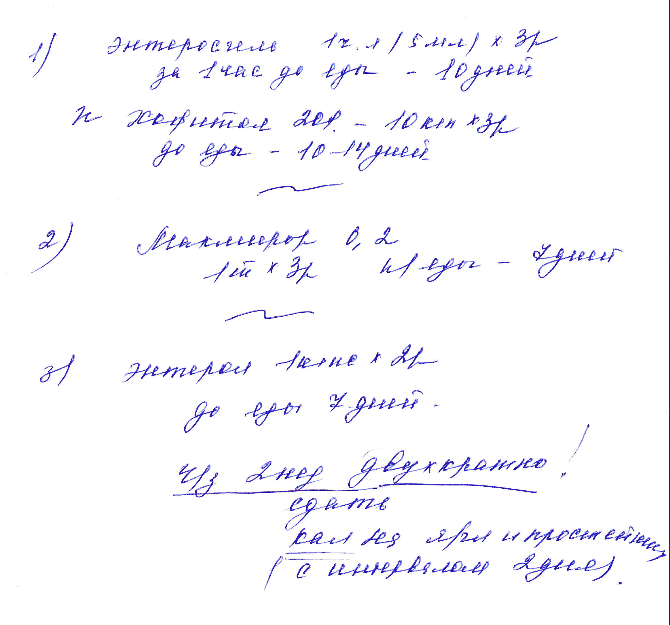 1) Энтеросгель 1ч.л (5 мл) х 3р
за 1 час до еды - 10 дней
Хофитол 20%. - 10 кап х 3р
до еды - 10-14 дней
2) Макмирор 0,2
1т х 3р п/еды - 7 дней
3) Энтерол 1капс х 2р
до еды 7 дней.
Ч/з 2 нед двухкратно!
сдать
кал на я/гл и простейших
(с интервалом 2 дня).